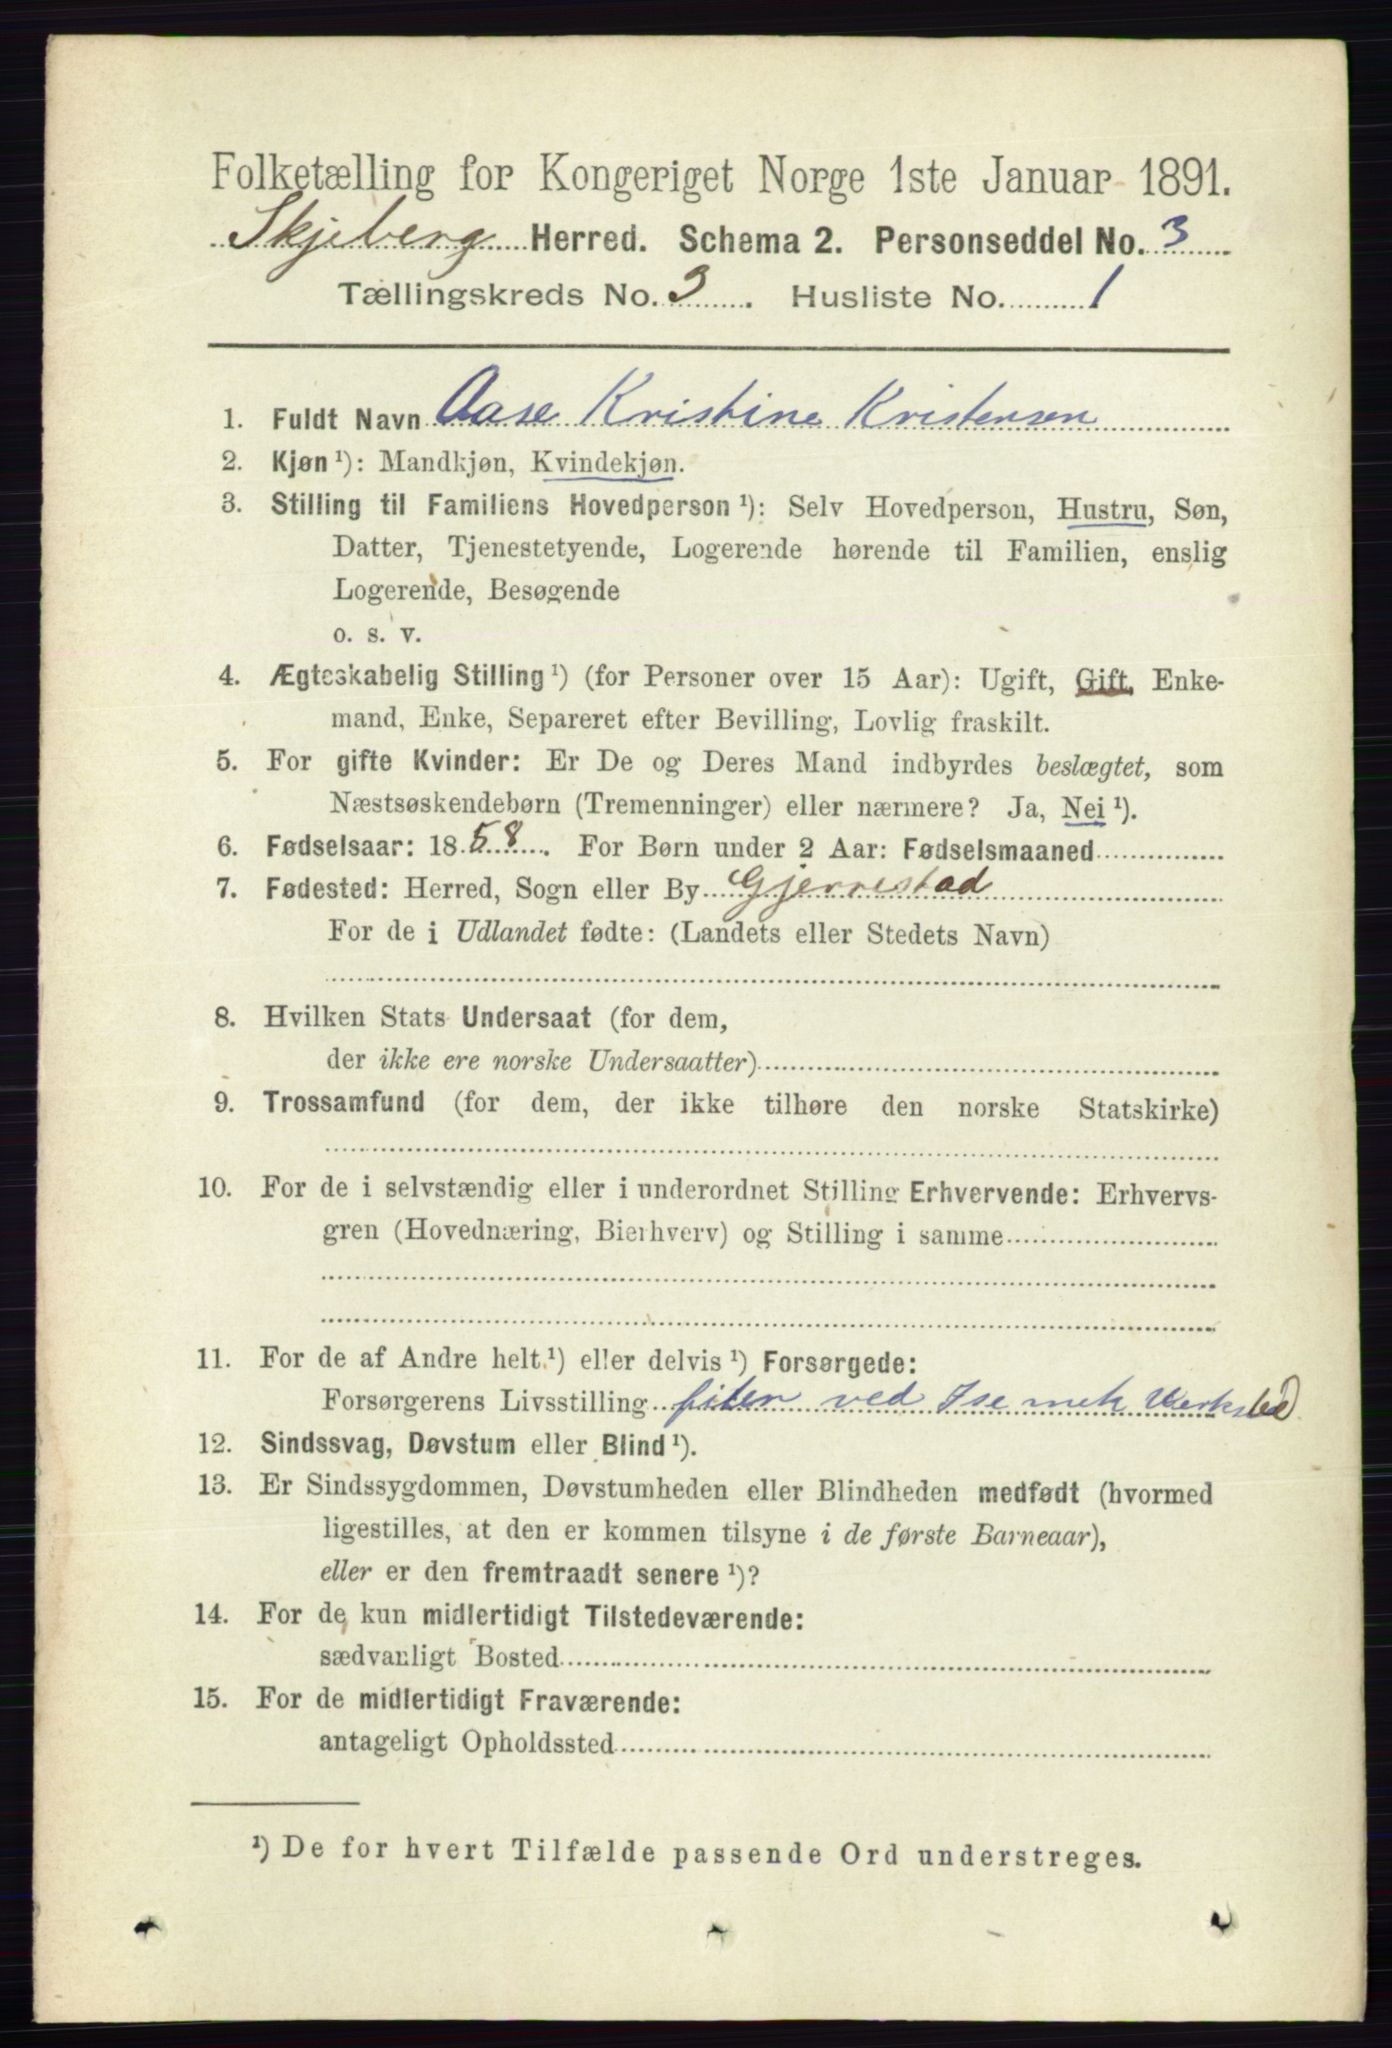 Folketælling for Kongeriget Norge 1ste Januar 1891.
Skjeberg Herred. Schema 2. Personseddel No. 3
Tællingskreds No. 3. Husliste No. 1
1. Fuldt Navn Aase Kristine Kristensen
2. Kjøn ¹): Mandkjøn, Kvindekjøn.
3. Stilling til Familiens Hovedperson ¹): Selv Hovedperson, Hustru, Søn,
Datter, Tjenestetyende, Logerende hørende til Familien, enslig
Logerende, Besøgende
o. s. v.
4. Ægteskabelig Stilling ¹) (for Personer over 15 Aar): Ugift, Gift, Enke-
mand, Enke, Separeret efter Bevilling, Lovlig fraskilt.
5. For gifte Kvinder: Er De og Deres Mand indbyrdes beslægtet, som
Næstsøskendebørn (Tremenninger) eller nærmere? Ja, Nei ¹).
6. Fødselsaar: 1858. For Børn under 2 Aar: Fødselsmaaned
7. Fødested: Herred, Sogn eller By Gjerrestad
For de i Udlandet fødte: (Landets eller Stedets Navn)
8. Hvilken Stats Undersaat (for dem,
der ikke ere norske Undersaatter)
9. Trossamfund (for dem, der ikke tilhøre den norske Statskirke)
10. For de i selvstændig eller i underordnet Stilling Erhvervende: Erhvervs-
gren (Hovednæring, Bierhverv) og Stilling i samme
11. For de af Andre helt ¹) eller delvis ¹) Forsørgede:
Forsørgerens Livsstilling filer ved Ise mek Værksted
12. Sindssvag, Døvstum eller Blind ¹).
13. Er Sindssygdommen, Døvstumheden eller Blindheden medfødt (hvormed
ligestilles, at den er kommen tilsyne i de første Barneaar),
eller er den fremtraadt senere ¹)?
14. For de kun midlertidigt Tilstedeværende:
sædvanligt Bosted
15. For de midlertidigt Fraværende:
antageligt Opholdssted
¹) De for hvert Tilfælde passende Ord understreges.